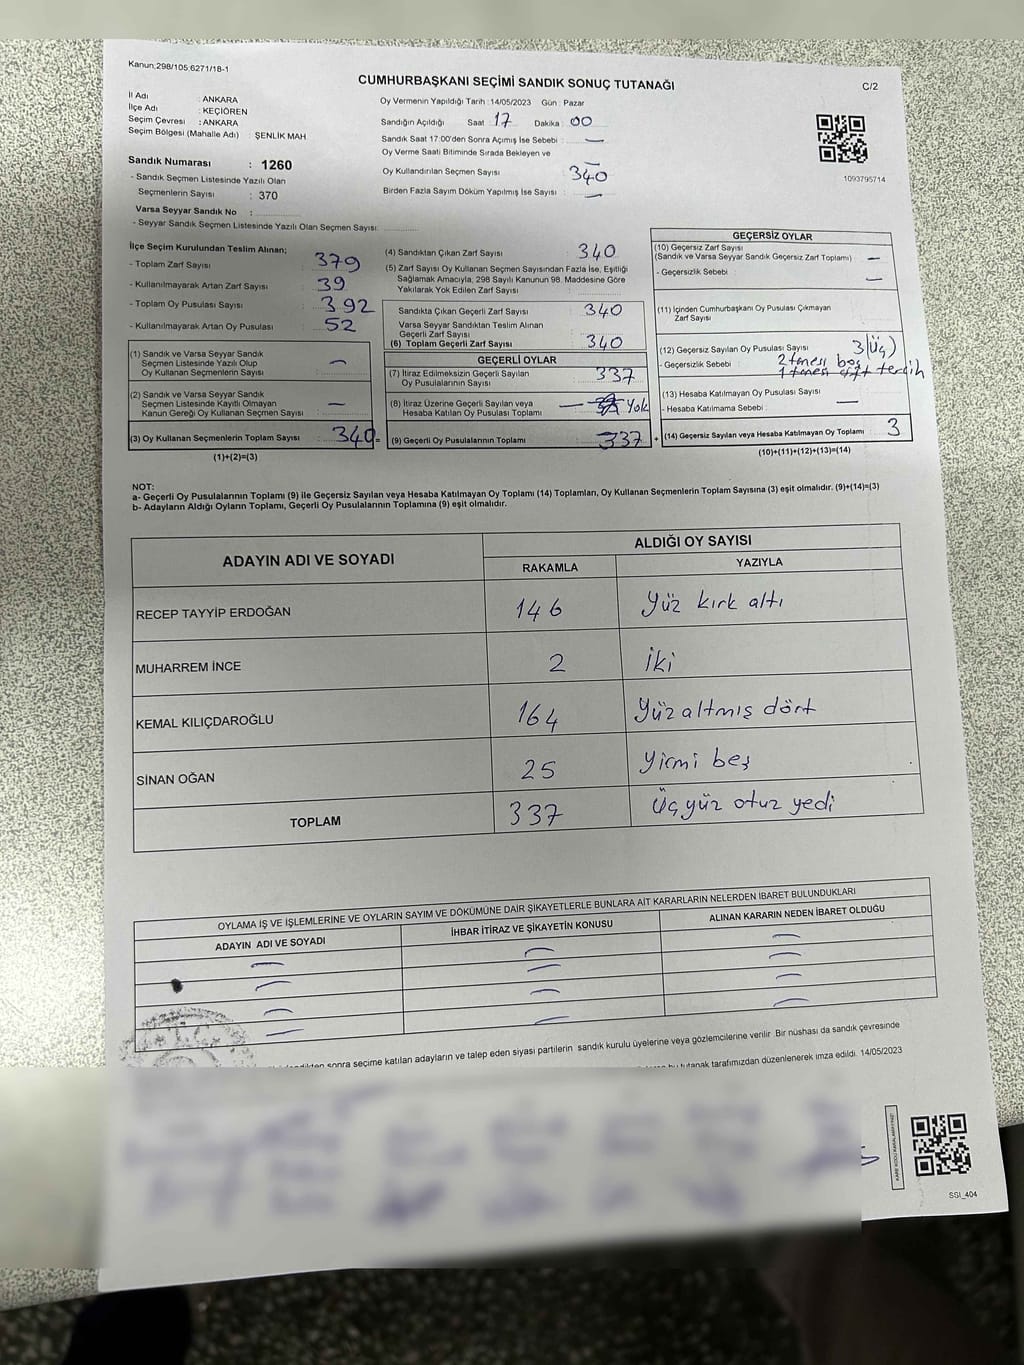 Kanun;298/105;6271/18-1
CUMHURBAŞKANI SEÇİMİ SANDIK SONUÇ TUTANAĞI
C/2
İl Adı : ANKARA
İlçe Adı : KEÇİÖREN
Seçim Çevresi : ANKARA
Seçim Bölgesi (Mahalle Adı) : ŞENLİK MAH
Oy Vermenin Yapıldığı Tarih :14/05/2023 Gün : Pazar
Sandığın Açıldığı Saat : 17 Dakika : 00
Sandık Saat 17:00'den Sonra Açımış İse Sebebi : —
Oy Verme Saati Bitiminde Sırada Bekleyen ve
Oy Kullandırılan Seçmen Sayısı : 340
Birden Fazla Sayım Döküm Yapılmış İse Sayısı : —
1093795714
Sandık Numarası : 1260
- Sandık Seçmen Listesinde Yazılı Olan
Seçmenlerin Sayısı : 370
Varsa Seyyar Sandık No :
- Seyyar Sandık Seçmen Listesinde Yazılı Olan Seçmen Sayısı:
İlçe Seçim Kurulundan Teslim Alınan;
- Toplam Zarf Sayısı : 379
- Kullanılmayarak Artan Zarf Sayısı : 39
- Toplam Oy Pusulası Sayısı : 392
- Kullanılmayarak Artan Oy Pusulası : 52
(1) Sandık ve Varsa Seyyar Sandık
Seçmen Listesinde Yazılı Olup
Oy Kullanan Seçmenlerin Sayısı : —
(2) Sandık ve Varsa Seyyar Sandık
Seçmen Listesinde Kayıtlı Olmayan
Kanun Gereği Oy Kullanan Seçmen Sayısı : —
(3) Oy Kullanan Seçmenlerin Toplam Sayısı : 340 =
(1)+(2)=(3)
(4) Sandıktan Çıkan Zarf Sayısı : 340
(5) Zarf Sayısı Oy Kullanan Seçmen Sayısından Fazla İse, Eşitliği
Sağlamak Amacıyla, 298 Sayılı Kanunun 98. Maddesine Göre
Yakılarak Yok Edilen Zarf Sayısı :
Sandıkta Çıkan Geçerli Zarf Sayısı : 340
Varsa Seyyar Sandıktan Teslim Alınan
Geçerli Zarf Sayısı :
(6) Toplam Geçerli Zarf Sayısı : 340
GEÇERLİ OYLAR
(7) İtiraz Edilmeksizin Geçerli Sayılan
Oy Pusulalarının Sayısı : 337
(8) İtiraz Üzerine Geçerli Sayılan veya
Hesaba Katılan Oy Pusulası Toplamı : — Yok
(9) Geçerli Oy Pusulalarının Toplamı : 337 +
GEÇERSİZ OYLAR
(10) Geçersiz Zarf Sayısı
(Sandık ve Varsa Seyyar Sandık Geçersiz Zarf Toplamı) : —
- Geçersizlik Sebebi : —
(11) İçinden Cumhurbaşkanı Oy Pusulası Çıkmayan
Zarf Sayısı :
(12) Geçersiz Sayılan Oy Pusulası Sayısı : 3(Üç)
- Geçersizlik Sebebi : 2 tanesi boş
1 tanesi çift tercih
(13) Hesaba Katılmayan Oy Pusulası Sayısı : —
- Hesaba Katılmama Sebebi :
(14) Geçersiz Sayılan veya Hesaba Katılmayan Oy Toplamı : 3
(10)+(11)+(12)+(13)=(14)
NOT:
a- Geçerli Oy Pusulalarının Toplamı (9) ile Geçersiz Sayılan veya Hesaba Katılmayan Oy Toplamı (14) Toplamları, Oy Kullanan Seçmenlerin Toplam Sayısına (3) eşit olmalıdır. (9)+(14)=(3)
b- Adayların Aldığı Oyların Toplamı, Geçerli Oy Pusulalarının Toplamına (9) eşit olmalıdır.
ADAYIN ADI VE SOYADI
ALDIĞI OY SAYISI
RAKAMLA YAZIYLA
RECEP TAYYİP ERDOĞAN 146 Yüz kırk altı
MUHARREM İNCE 2 İki
KEMAL KILIÇDAROĞLU 164 Yüz altmış dört
SİNAN OĞAN 25 Yirmi beş
TOPLAM 337 Üç yüz otuz yedi
OYLAMA İŞ VE İŞLEMLERİNE VE OYLARIN SAYIM VE DÖKÜMÜNE DAİR ŞİKAYETLERLE BUNLARA AİT KARARLARIN NELERDEN İBARET BULUNDUKLARI
ADAYIN ADI VE SOYADI İHBAR İTİRAZ VE ŞİKAYETİN KONUSU ALINAN KARARIN NEDEN İBARET OLDUĞU
T.C.
sonra seçime katılan adayların ve talep eden siyasi partilerin sandık kurulu üyelerine veya gözlemcilerine verilir. Bir nüshası da sandık çevresinde
bu tutanak tarafımızdan düzenlenerek imza edildi. 14/05/2023
KARE KODU KARALAMAYINIZ!
SSI_404